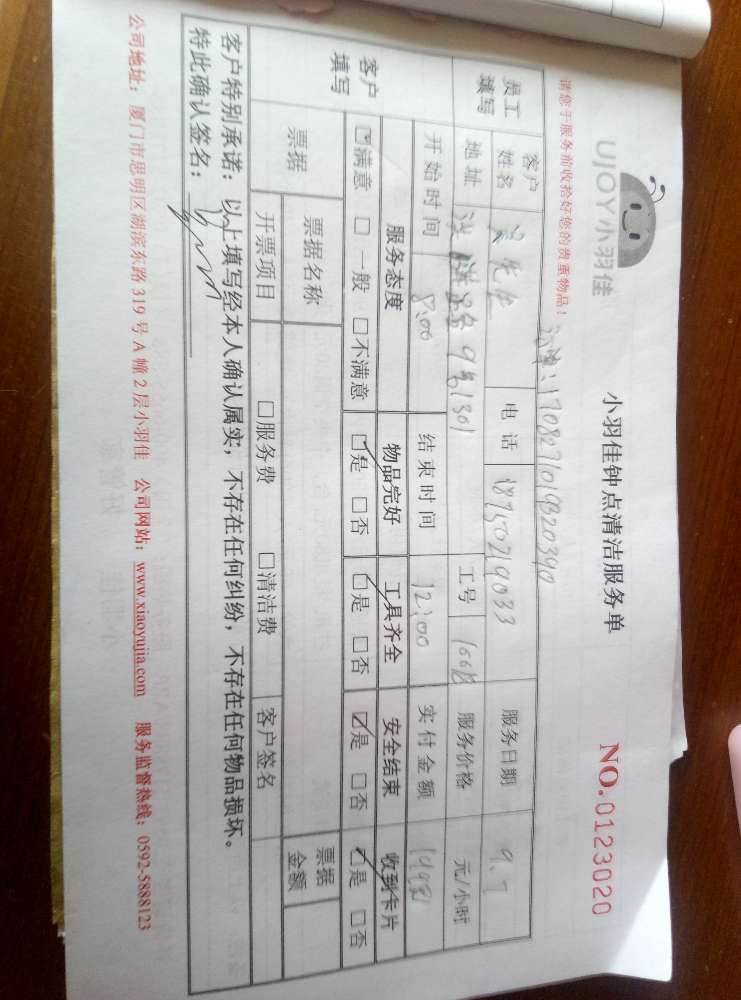 UJOY小羽佳
小羽佳钟点清洁服务单
NO.0123020
请您于服务前收拾好您的贵重物品!
员工填写
客户姓名
先生
电话
18750219033
服务日期
9.7
地址
9号1301
工号
服务价格
元/小时
开始时间
8:00
结束时间
12:00
实付金额
客户填写
服务态度 物品完好 工具齐全 安全结束 收到卡片
满意 一般 不满意 是 否 是 否 是 否 是 否
票据
票据名称
票据金额
开票项目 服务费 清洁费 客户签名
客户特别承诺:以上填写经本人确认属实,不存在任何纠纷,不存在任何物品损坏。
特此确认签名:
公司地址:厦门市思明区湖滨东路319号A幢2层小羽佳 公司网站:www.xiaoyujia.com 服务监督热线:0592-5888123